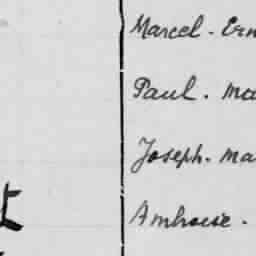 Marcel - Ern
Paul - Ma
Joseph - Ma
Ambroise -
t